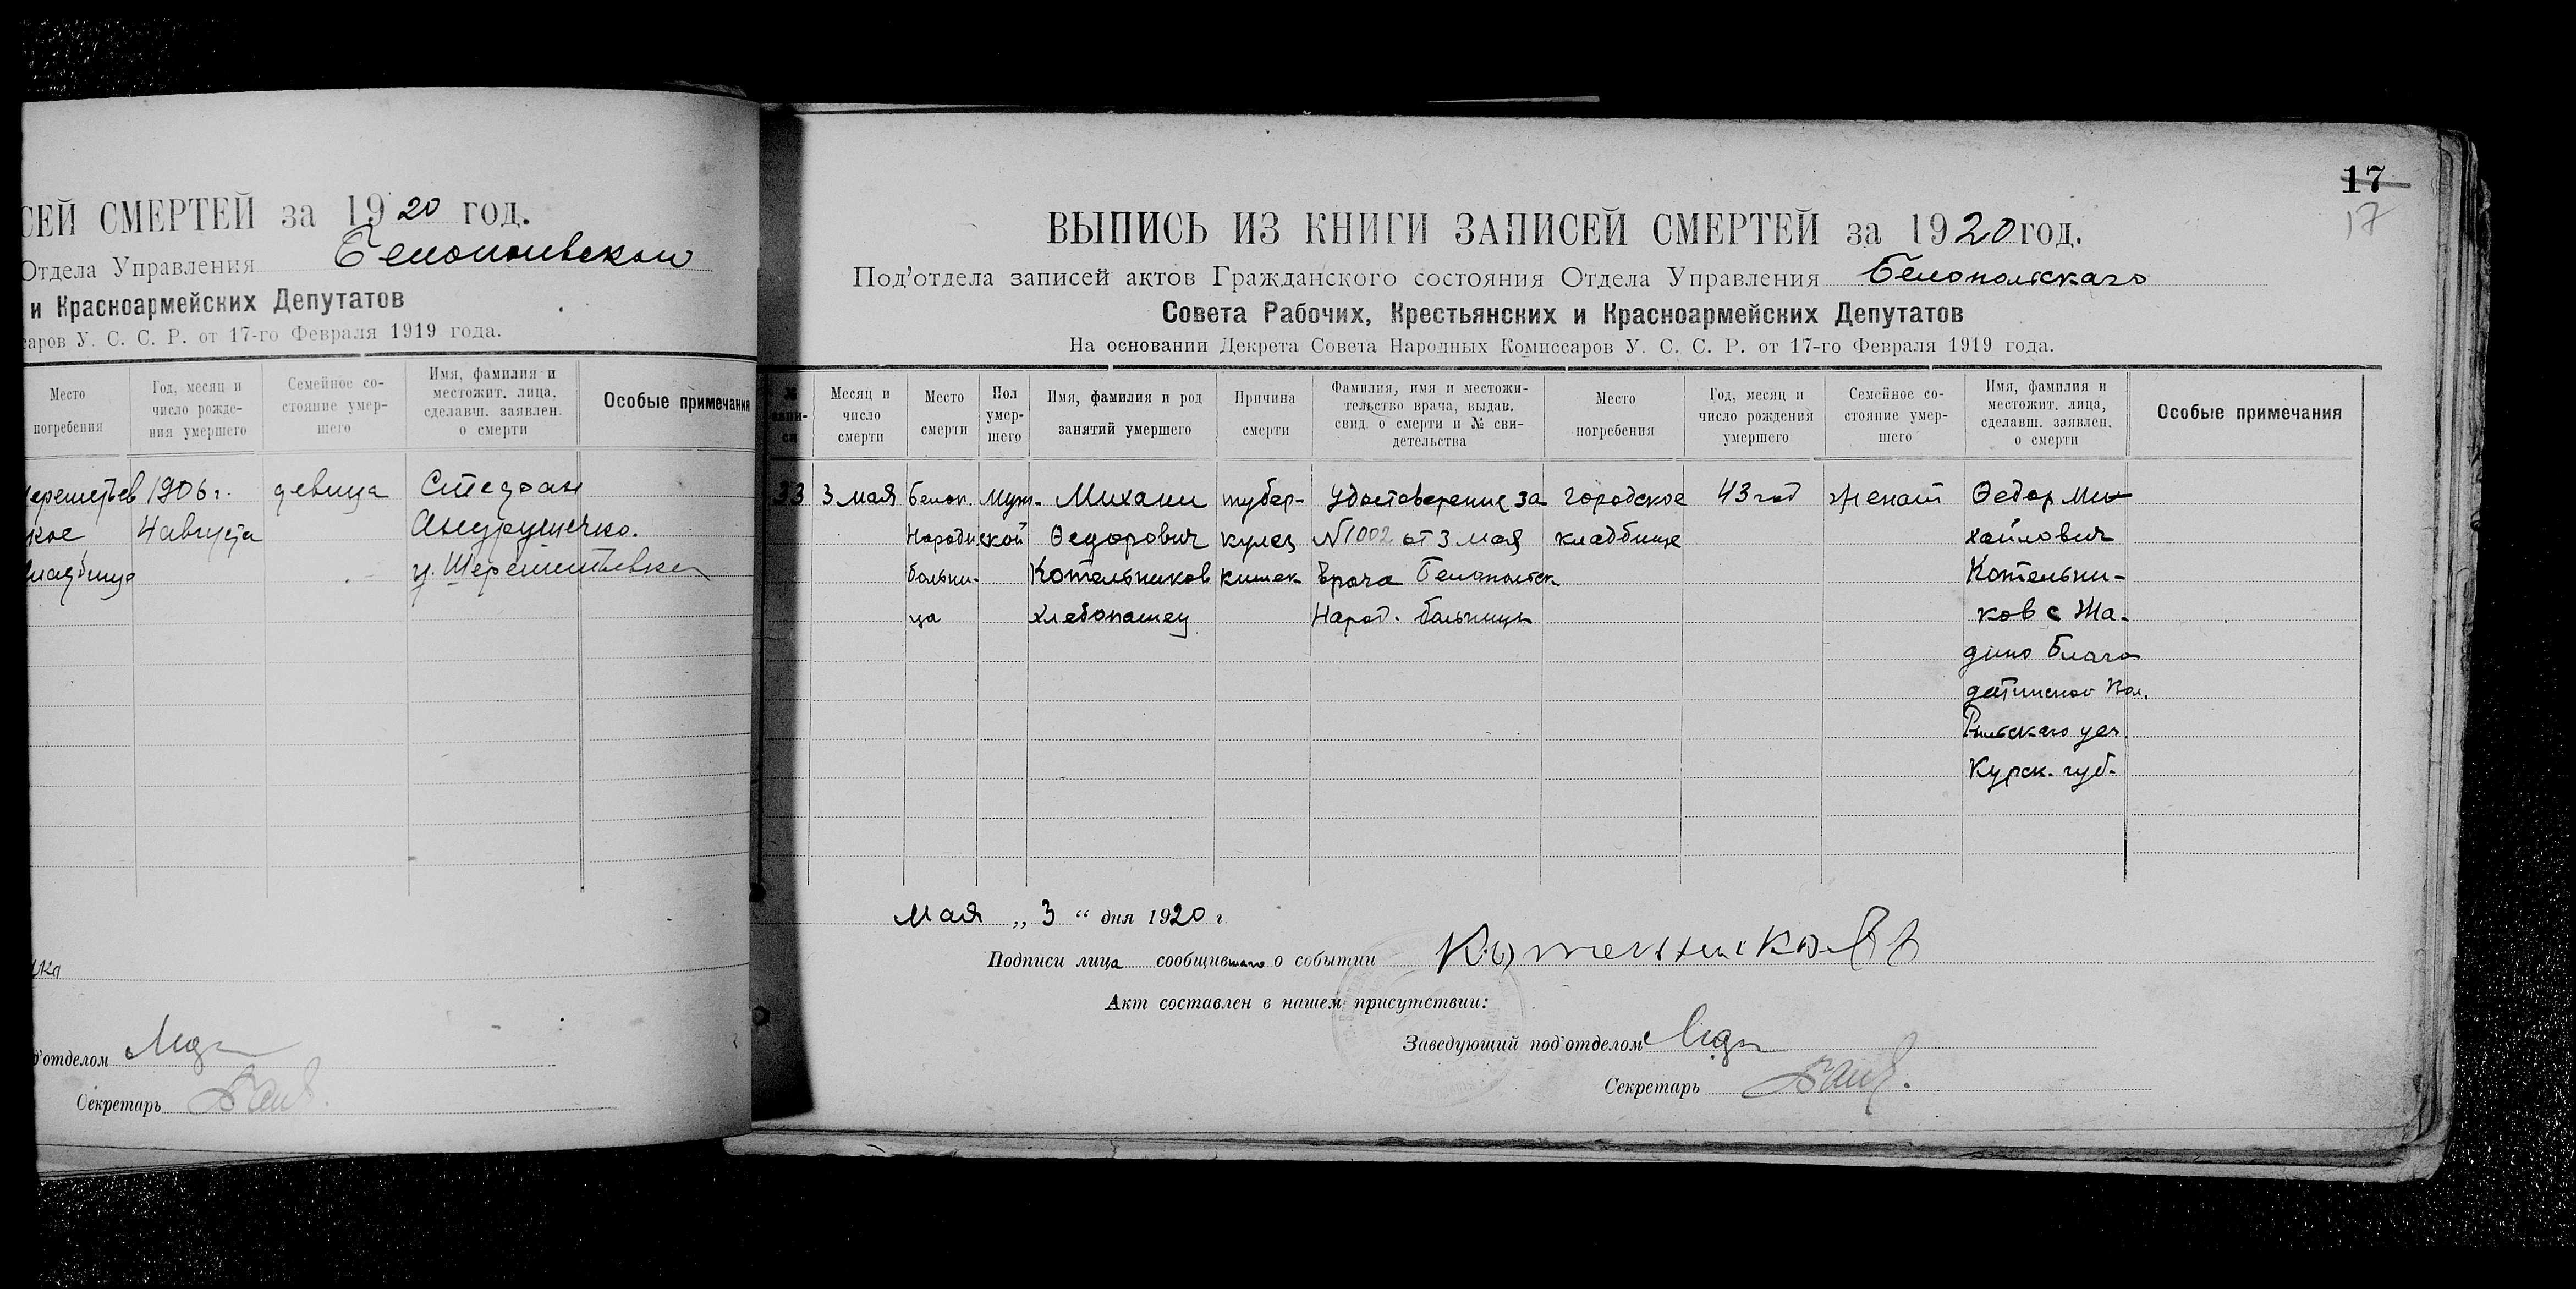 СЕЙ СМЕРТЕЙ за 1920 год.
Отдела Управления
и Красноармейских Депутатов
саров У. С. С. Р. от 17-го Февраля 1919 года.
Место погребения
Год, месяц и число рожде-ния умершего
Семейное со-стояние умер-шего
Имя, фамилия и местожит. лица, сделавш. заявлен. о смерти
Особые примечания
1906 г. девица Стефан
кое 4 августа
кладбище
д'отделом
Секретарь
17
17
ВЫПИСЬ ИЗ КНИГИ ЗАПИСЕЙ СМЕРТЕЙ за 1920 год.
Под'отдела записей актов Гражданского состояния Отдела Управления Белопольскаго
Совета Рабочих, Крестьянских и Красноармейских Депутатов
На основании Декрета Совета Народных Комиссаров У. С. С. Р. от 17-го Февраля 1919 года.
№ запи-си
Месяц и число смерти
Место смерти
Пол умер-шего
Имя, фамилия и род занятий умершего
Причина смерти
Фамилия, имя и местожи-тельство врача, выдав. свид. о смерти и № сви-детельства
Место погребения
Год, месяц и число рождения умершего
Семейное со-стояние умер-шего
Имя, фамилия и местожит. лица, сделавш. заявлен. о смерти
Особые примечания
33 3 мая Белоп. Муж- Михаил тубер- Удостоверение за городское 43 год женат Ѳедор Ми-
Народн ской Ѳедорович кулез №1002 от 3 мая кладбище хайлович
больни- Котельников кишек врача Белопольск Котельни-
ца хлебопашец Народ. больницы ков с Жа-
дино Благо
датинской Вол.
Рыльскаго уез.
Курск. губ.
Мая „ 3 “ дня 1920 г.
Подписи лица сообщившаго о событии Котельниковъ
Акт составлен в нашем присутствии:
Заведующий под'отделом
Секретарь